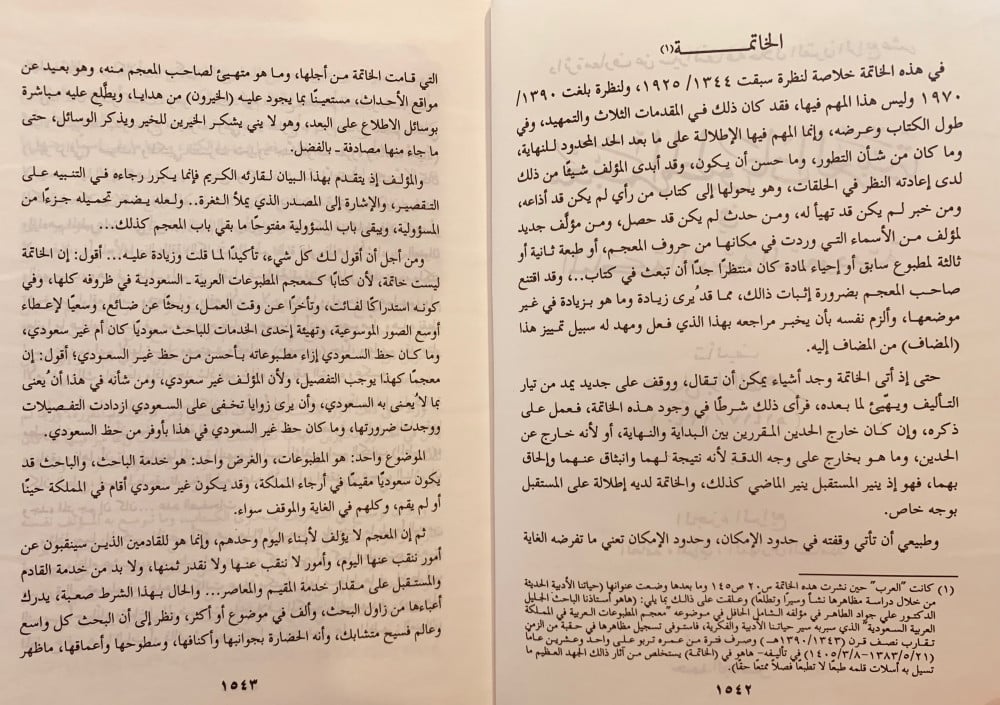 الخاتمـــــــة (١)
في هذه الخاتمة خلاصة لنظرة سبقت ١٣٤٤/ ١٩٢٥، ولنظرة بلغت ١٣٩٠/
١٩٧٠ وليس هذا المهم فيها، فقد كان ذلك في المقدمات الثلاث والتمهيد، وفي
طول الكتاب وعرضه، وإنما المهم فيها الإطلالة على ما بعد الحد المحدود للنهاية،
وما كان من شأن التطور، وما حسن أن يكون، وقد أبدى المؤلف شيئًا من ذلك
لدى إعادته النظر في الحلقات، وهو يحولها إلى كتاب من رأي لم يكن قد أذاعه،
ومن خبر لم يكن قد تهيأ له، ومن حدث لم يكن قد حصل، ومن مؤلَّف جديد
لمؤلف من الأسماء التي وردت في مكانها من حروف المعجم، أو طبعة ثانية أو
ثالثة لمطبوع سابق أو إحياء لمادة كان منتظرًا جدًا أن تبعث في كتاب..، وقد اقتنع
صاحب المعجم بضرورة إثبات ذلك، مما قد يُرى زيادة وما هو بزيادة في غير
موضعها، وألزم نفسه بأن يخبر مراجعه بهذا الذي فعل ومهد له سبيل تمييز هذا
(المضاف) من المضاف إليه.
حتى إذ أتى الخاتمة وجد أشياء يمكن أن تقال، ووقف على جديد يمد من تيار
التأليف ويهيّئ لما بعده، فرأى ذلك شرطًا في وجود هذه الخاتمة، فعمل على
ذكره، وإن كان خارج الحدين المقررين بين البداية والنهاية، أو لأنه خارج عن
الحدين، وما هو بخارج على وجه الدقة لأنه نتيجة لهما وانبثاق عنهما وإلحاق
بهما، فهو إذ ينير المستقبل ينير الماضي كذلك، والخاتمة لديه إطلالة على المستقبل
بوجه خاص.
وطبيعي أن تأتي وقفته في حدود الإمكان، وحدود الإمكان تعني ما تفرضه الغاية
(١) كانت "العرب" حين نشرت هذه الخاتمة ص٢٠ ص١٤٥ وما بعدها وضعت عنوانها (حياتنا الأدبية الحديثة
من خلال دراسة مظاهرها نشأ وسيرًا وتطلعًا) وعلقت على ذلك بما يلي: (هاهو أستاذنا الباحث الجليل
الدكتور علي جواد الطاهر في مؤلفه الشامل الحافل في موضوعه "معجم المطبوعات العربية في المملكة
العربية السعودية" الذي سبر به سير حياتنا الأدبية والفكرية، فاستوفى تسجيل مظاهرها في حقبة من الزمن
تقارب نصف قرن (١٣٤٣/ ١٣٩٠هـ) وصرف فترة من عمره تربو على واحد وعشرين عامًا
(١٣٨٣/٥/٢١–١٤٠٥/٣/٨) في تأليفه- هاهو في (الخاتمة) يستخلص من آثار ذالك الجهد العظيم ما
تسيل به أسلات قلمه طبعًا لا تطبعًا فصلاً ممتعًا حقًا).
١٥٤٢
التي قامت الخاتمة من أجلها، وما هو متهيئ لصاحب المعجم منه، وهو بعيد عن
مواقع الأحداث، مستعينًا بما يجود عليه (الخيرون) من هدايا، ويطَّلع عليه مباشرة
بوسائل الاطلاع على البعد، وهو لا يني يشكر الخيرين للخير ويذكر الوسائل، حتى
ما جاء منها مصادفة ـ بالفضل.
والمؤلف إذ يتقدم بهذا البيان لقارئه الكريم فإنما يكرر رجاءه في التنبيه على
التقصير، والإشارة إلى المصدر الذي يملأ الثغرة.. ولعله يضمر تحميله جزءًا من
المسؤولية، ويبقى باب المسؤولية مفتوحًا ما بقي باب المعجم كذلك...
ومن أجل أن أقول لك كل شيء، تأكيدًا لما قلت وزيادة عليه... أقول: إن الخاتمة
ليست خاتمة، لأن كتابًا كـمعجم المطبوعات العربية ـ السعودية في ظروفه كلها، وفي
كونه استدراكًا لفائت، وتأخرًا عن وقت العمل، وبحثًا عن ضائع، وسعيًا لإعطاء
أوسع الصور الموسوعية، وتهيئة إحدى الخدمات للباحث سعوديًا كان أم غير سعودي،
وما كان حظ السعودي إزاء مطبوعاته بأحسن من حظ غير السعودي؛ أقول: إن
معجمًا كهذا يوجب التفصيل، ولأن المؤلف غير سعودي، ومن شأنه في هذا أن يُعنى
بما لا يُعنى به السعودي، وأن يرى زوايا تخفى على السعودي ازدادت التفصيلات
ووجدت ضرورتها، وما كان حظ غير السعودي في هذا بأوفر من حظ السعودي.
الموضوع واحد: هو المطبوعات، والغرض واحد: هو خدمة الباحث، والباحث قد
يكون سعوديًا مقيمًا في أرجاء المملكة، وقد يكون غير سعودي أقام في المملكة حينًا
أو لم يقم، وكلهم في الغاية والموقف سواء.
ثم إن المعجم لا يؤلف لأبناء اليوم وحدهم، وإنما هو للقادمين الذين سينقبون عن
أمور ننقب عنها اليوم، وأمور لا ننقب عنها ولا نقدر ثمنها، ولا بد من خدمة القادم
والمستقبل على مقدار خدمة المقيم والمعاصر... والحال بهذا الشرط صعبة، يدرك
أعباءها من زاول البحث، وألف في موضوع أو أكثر، ونظر إلى أن البحث كل واسع
وعالم فسيح متشابك، وأنه الحضارة بجوانبها وأكنافها، وسطوحها وأعماقها، ماظهر
١٥٤٣